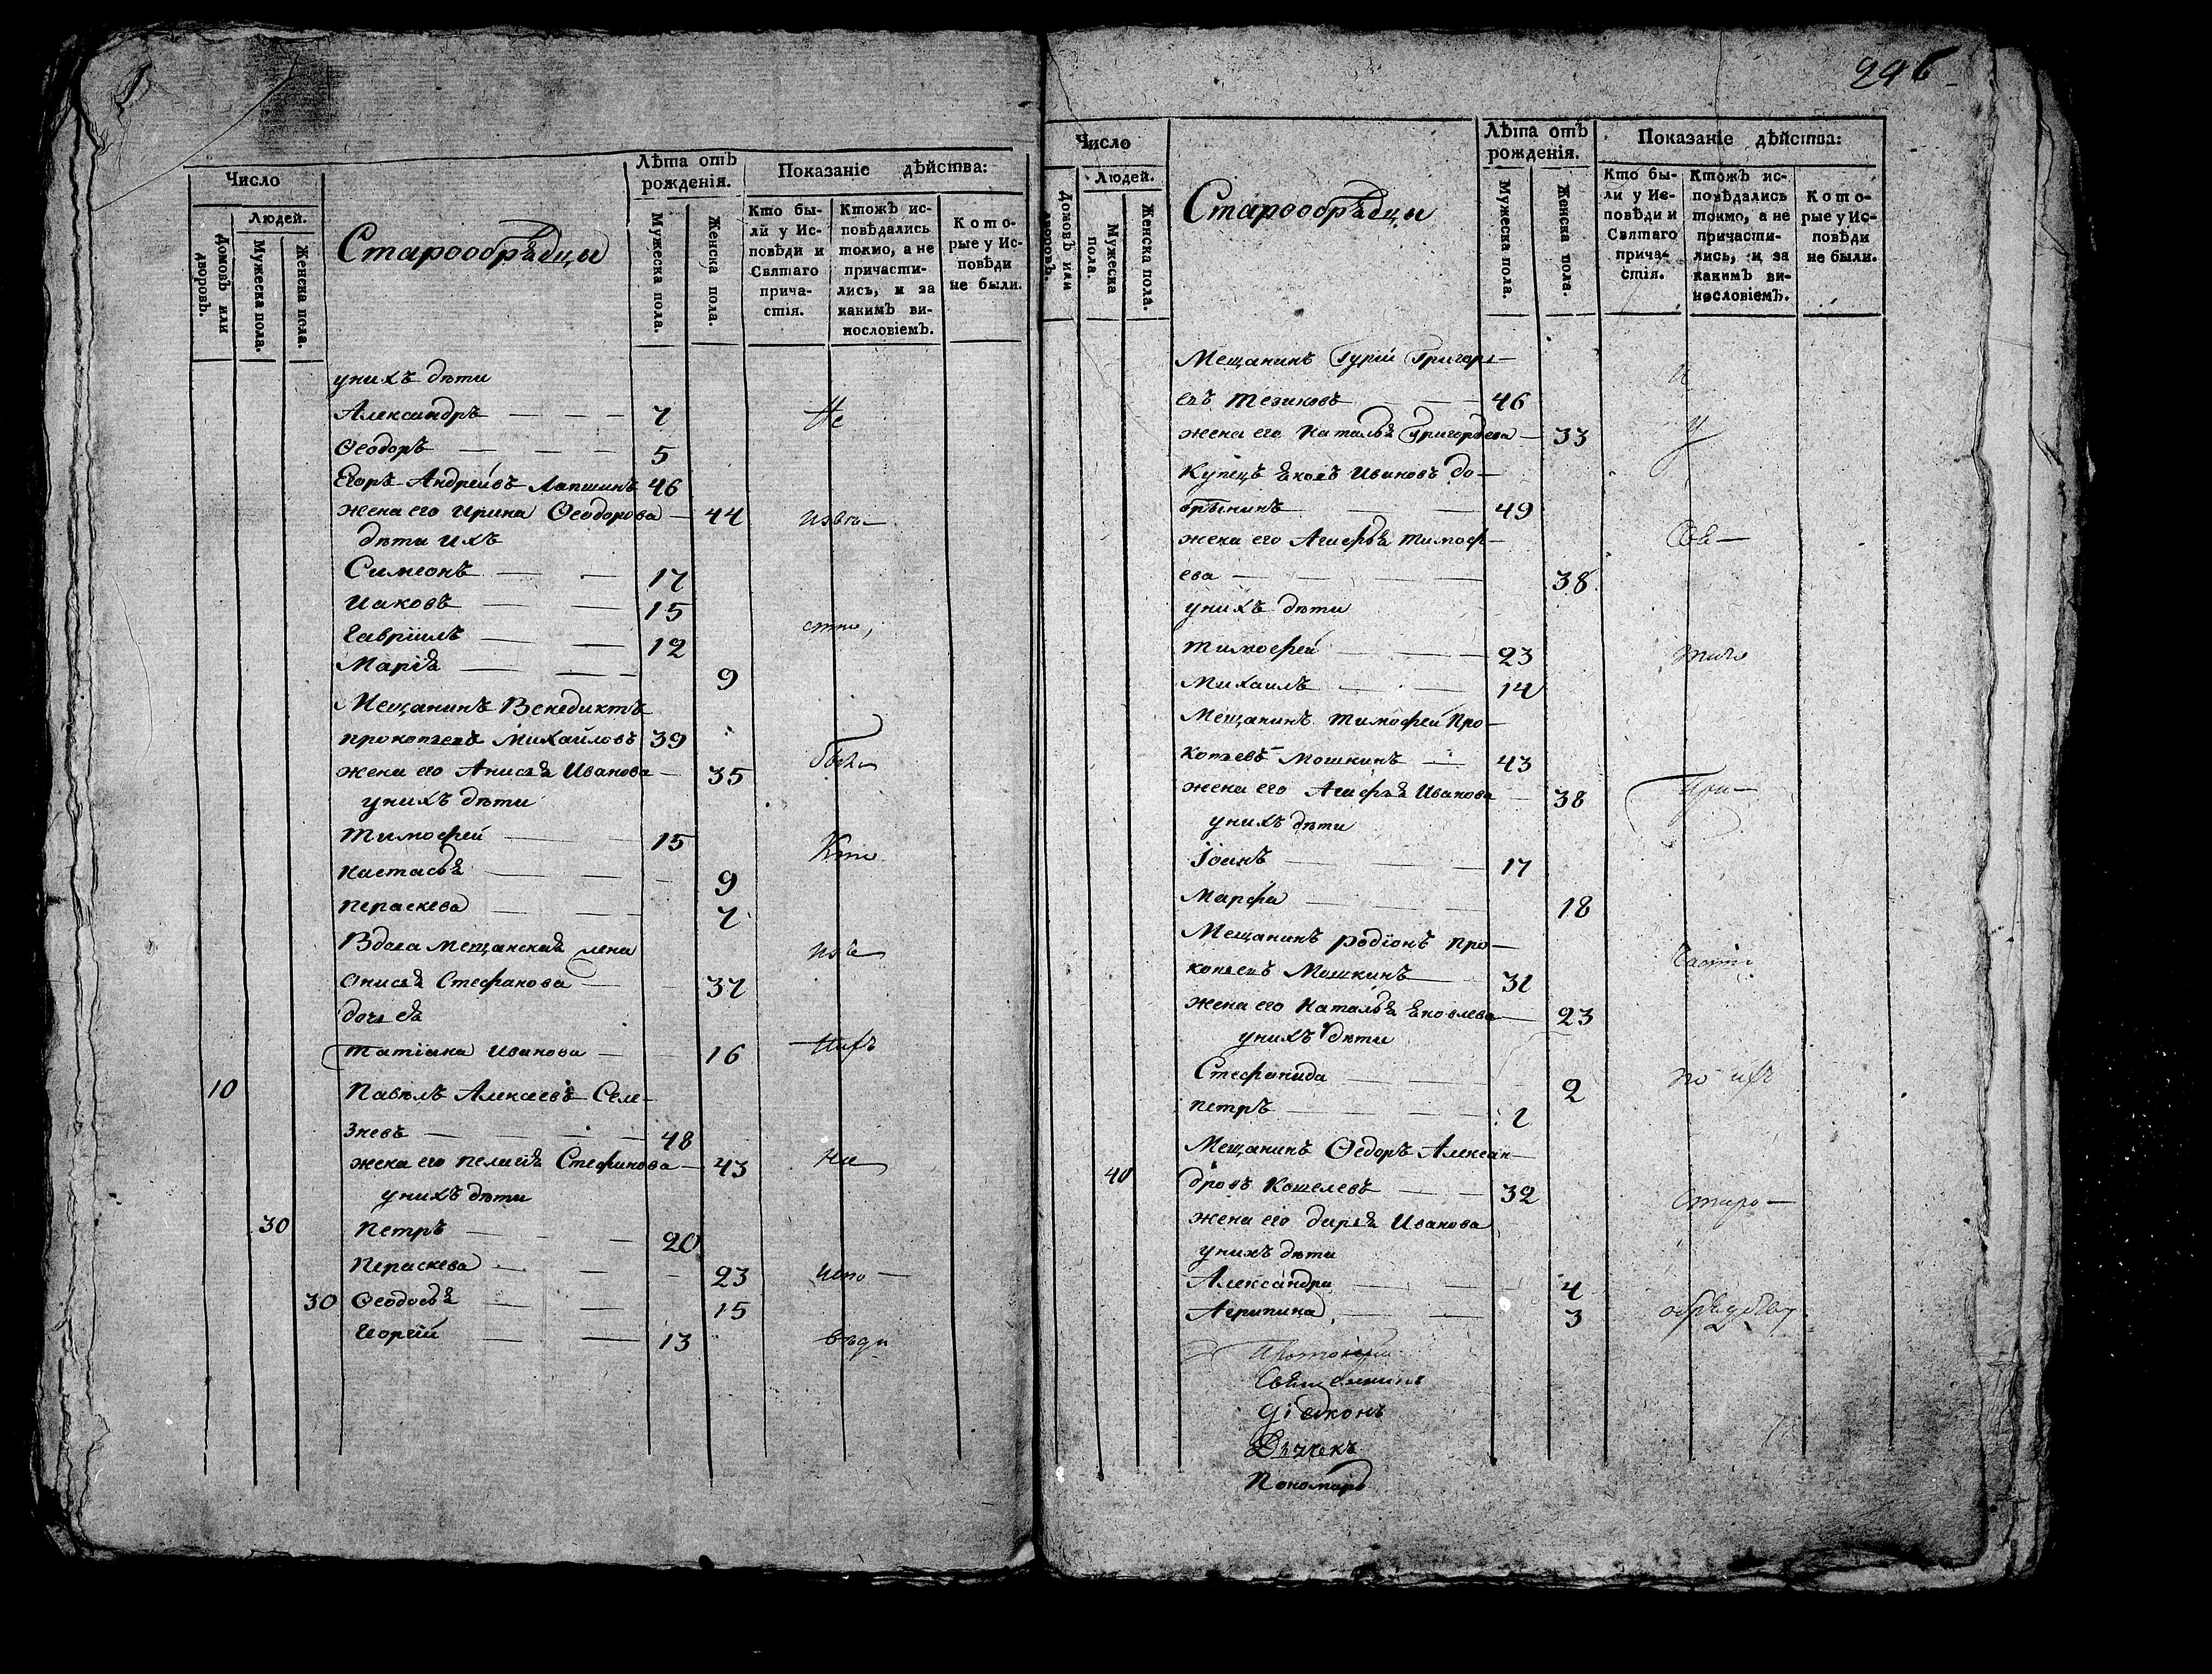 Число
Людей.
Домовъ или дворовъ.
Мужеска пола.
Женска пола.
Старообрѣдцы
Лѣта отъ рожденія.
Мужеска пола.
Женска пола.
Показаніе дѣйства:
Кто бы-
ли у Ис-
повѣди и
Святаго
прича-
стія.
Ктожъ ис-
повѣдались
токмо, а не
причасти-
лись, и за
какимъ ви-
нословіемъ.
Кото-
рые у Ис-
повѣди
не были.
у нихъ дѣти
Александръ 7 Не
Ѳеодоръ 5
Егоръ Андреевъ Лапшинъ 46
жена его Ирина Ѳеодорова 44 извѣ-
дѣти ихъ
Симеонъ 17
Иаковъ 15
Гавріилъ 12 стно,
Марія 9
Мещанинъ Венедиктъ
Прокопьевъ Михайловъ 39
жена его Анисья Иванова 35 были
у нихъ дѣти
Тимофей 15 Кто
Настасья 9
Пераскева 7
Вдова Мещанская жена изъ
Онисья Стефанова 37
дочь ея
Татіана Иванова 16 нихъ
10 Павелъ Алексеевъ Селе-
зневъ 48
жена его Пелагея Стефанова 43 на
у нихъ дѣти
30 Петръ 20
Пераскева 23 испо-
30 Ѳеодосья 15
Георгій 13 вѣди
296
Число
Людей.
Домовъ или дворовъ.
Мужеска пола.
Женска пола.
Старообрѣдцы
Лѣта отъ рожденія.
Мужеска пола.
Женска пола.
Показаніе дѣйства:
Кто бы-
ли у Ис-
повѣди и
Святаго
прича-
стія.
Ктожъ ис-
повѣдались
токмо, а не
причасти-
лись, и за
какимъ ви-
нословіемъ.
Кото-
рые у Ис-
повѣди
не были.
Мещанинъ Гурій Григорь-
евъ Тезиковъ 46 и
жена его Наталья Григорьева 33 у
Купецъ Яковъ Ивановъ До-
брынинъ 49
жена его Агафья Тимоф- Свя-
ева 38
у нихъ дѣти
Тимофей 23 таго
Михаилъ 14
Мещанинъ Тимофей Про-
копьевъ Мошкинъ 43
жена его Агафья Иванова 38 При-
у нихъ дѣти
Іоанъ 17
Марфа 18
Мещанинъ Родіонъ Про-
копьевъ Мошкинъ 31 частія
жена его Наталья Яковлева 23
у нихъ дѣти
Стефанида 2 по ихъ
Петръ 1
Мещанинъ Ѳедоръ Алексан-
40 дровъ Кошелевъ 32 старо-
жена его Дарья Иванова
у нихъ дѣти
Александра 4
Агрипина 3
Протоіерей
Священникъ
Діаконъ
Дьячекъ
Пономарь